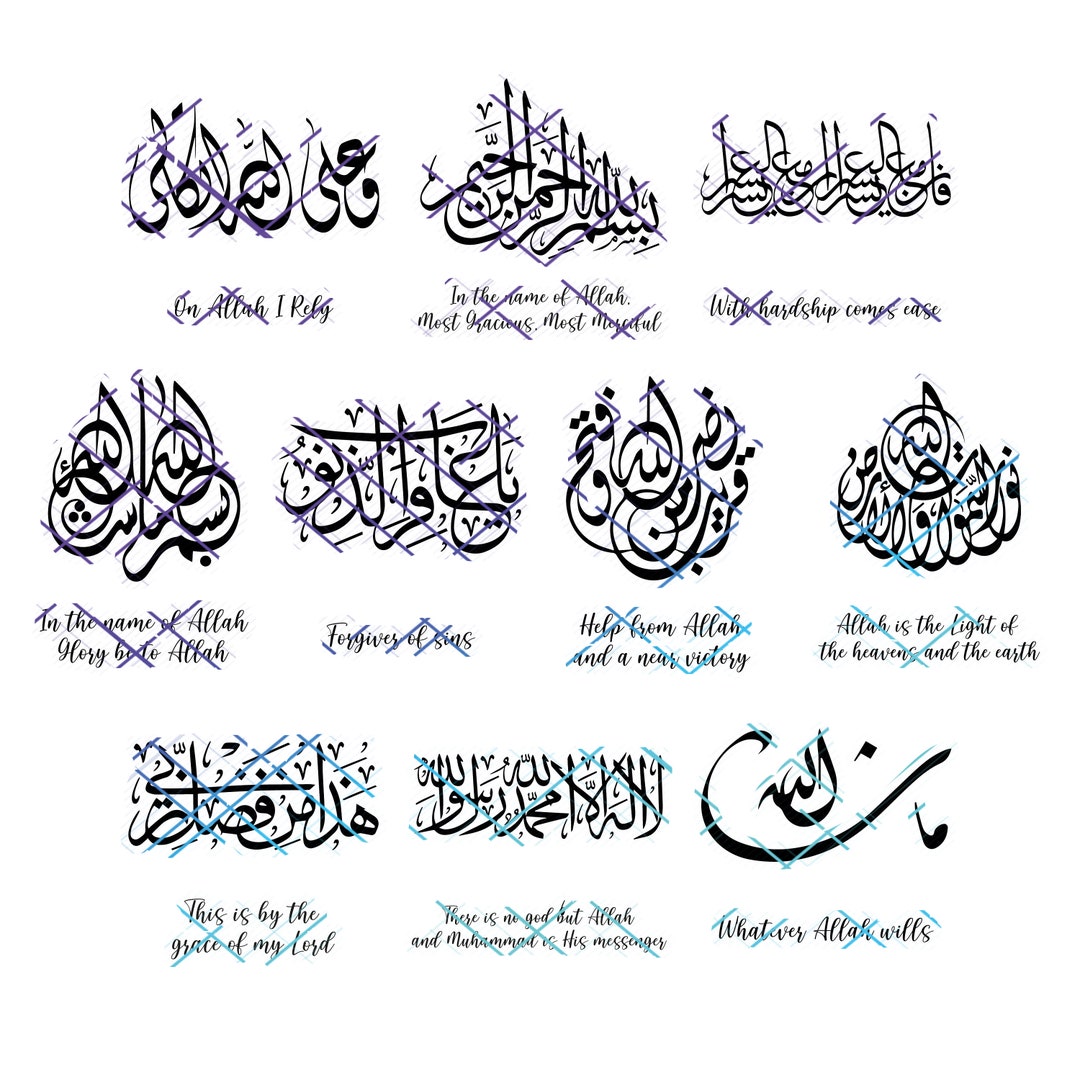 وعلى الله اتكالي
بسم الله الرحمن الرحيم
فإن مع العسر يسرا إن مع العسر يسرا
On Allah I Rely
In the name of Allah,
Most Gracious, Most Merciful
With hardship comes ease
بسم الله ما شاء الله
يا غافر الذنوب
نصر من الله وفتح قريب
الله نور السموات والأرض
In the name of Allah
Glory be to Allah
Forgiver of sins
Help from Allah
and a near victory
Allah is the Light of
the heavens and the earth
هذا من فضل ربي
لا اله الا الله محمد رسول الله
ما شاء الله
This is by the
grace of my Lord
There is no god but Allah
and Muhammad is His messenger
Whatever Allah wills